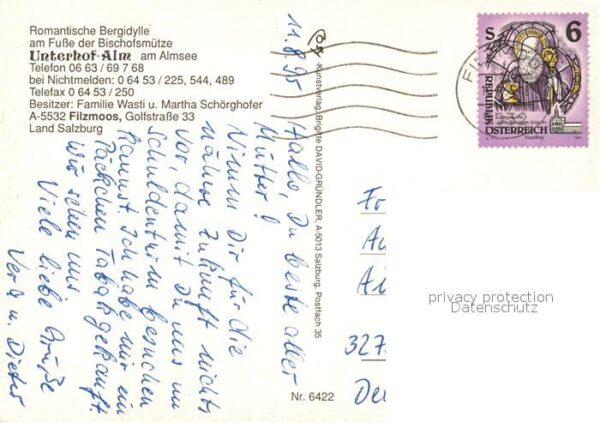 Romantische Bergidylle
am Fuße der Bischofsmütze
Unterhof-Alm am Almsee
Telefon 06 63 / 69 7 68
bei Nichtmelden: 0 64 53 / 225, 544, 489
Telefax 0 64 53 / 250
Besitzer: Familie Wasti u. Martha Schörghofer
A-5532 Filzmoos, Golfstraße 33
Land Salzburg
11.8.95
Hallo, Du beste aller
Mütter!
Nimm Dir für die
nähere Zukunft nichts
vor, damit Du uns im
Schuldenturm besuchen
kannst. Ich habe mir ein
Päckchen Tabak gekauft.
Wir sehen uns
Viele liebe Grüße
Vera u. Dieter
Kunstverlag Brigitte DAVID-GRÜNDLER, A-5013 Salzburg, Postfach 35
Nr. 6422
S 6
REPUBLIK
ÖSTERREICH
FIL
327
privacy protection
Datenschutz